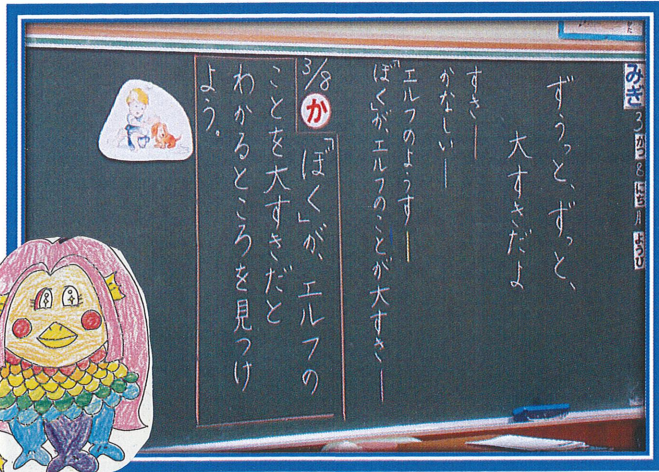 みぎ
3がつ8にち月ようび
ずうっと、ずっと、
大すきだよ
すき―
かなしい―
エルフのようす―
「ぼく」が、エルフのことが大すき―
3/8 か 「ぼく」が、エルフの
ことを大すきだと
わかるところを見つけ
よう。